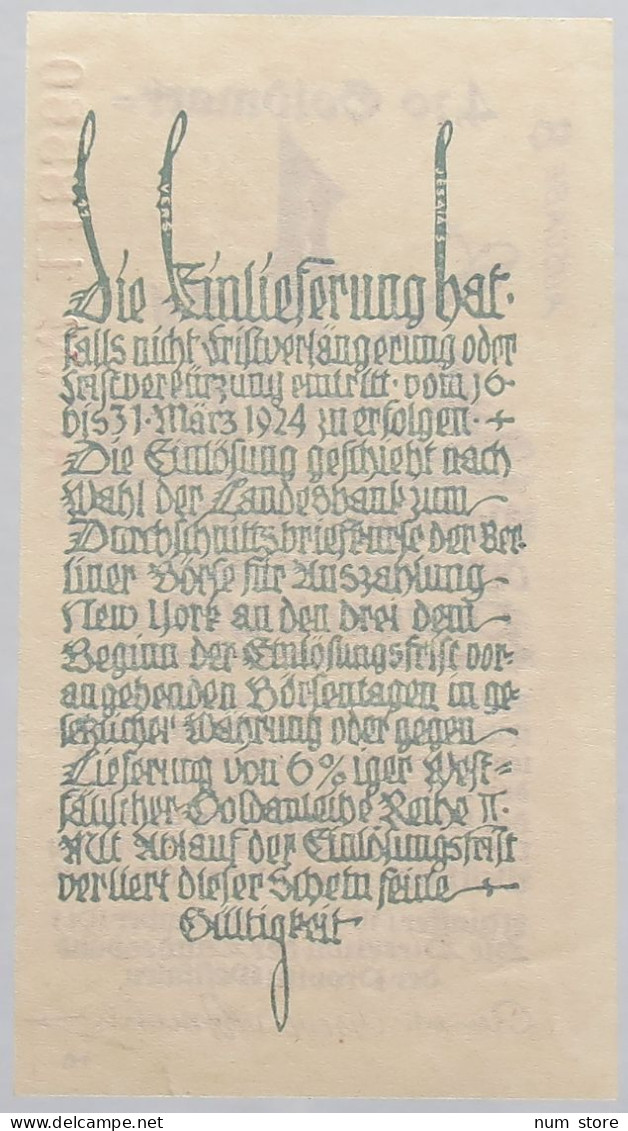 VERS
JESAIA 5
Die Einlieferung hat·
falls nicht Fristverlängerung oder
Fristverkürzung eintritt· vom 16·
bis 31· März 1924 zu erfolgen· +
Die Einlösung geschieht nach
Wahl der Landesbank zum
Durchschnittsbriefkurse der Ber-
liner Börse für Auszahlung
New York an den drei dem
Beginn der Einlösungsfrist vor-
angehenden Börsentagen in ge-
setzlicher Währung oder gegen
Lieferung von 6%iger West=
fälischer Goldanleihe Reihe II·
Mit Ablauf der Einlösungsfrist
verliert dieser Schein seine +
Gültigkeit
www.delcampe.net
num store